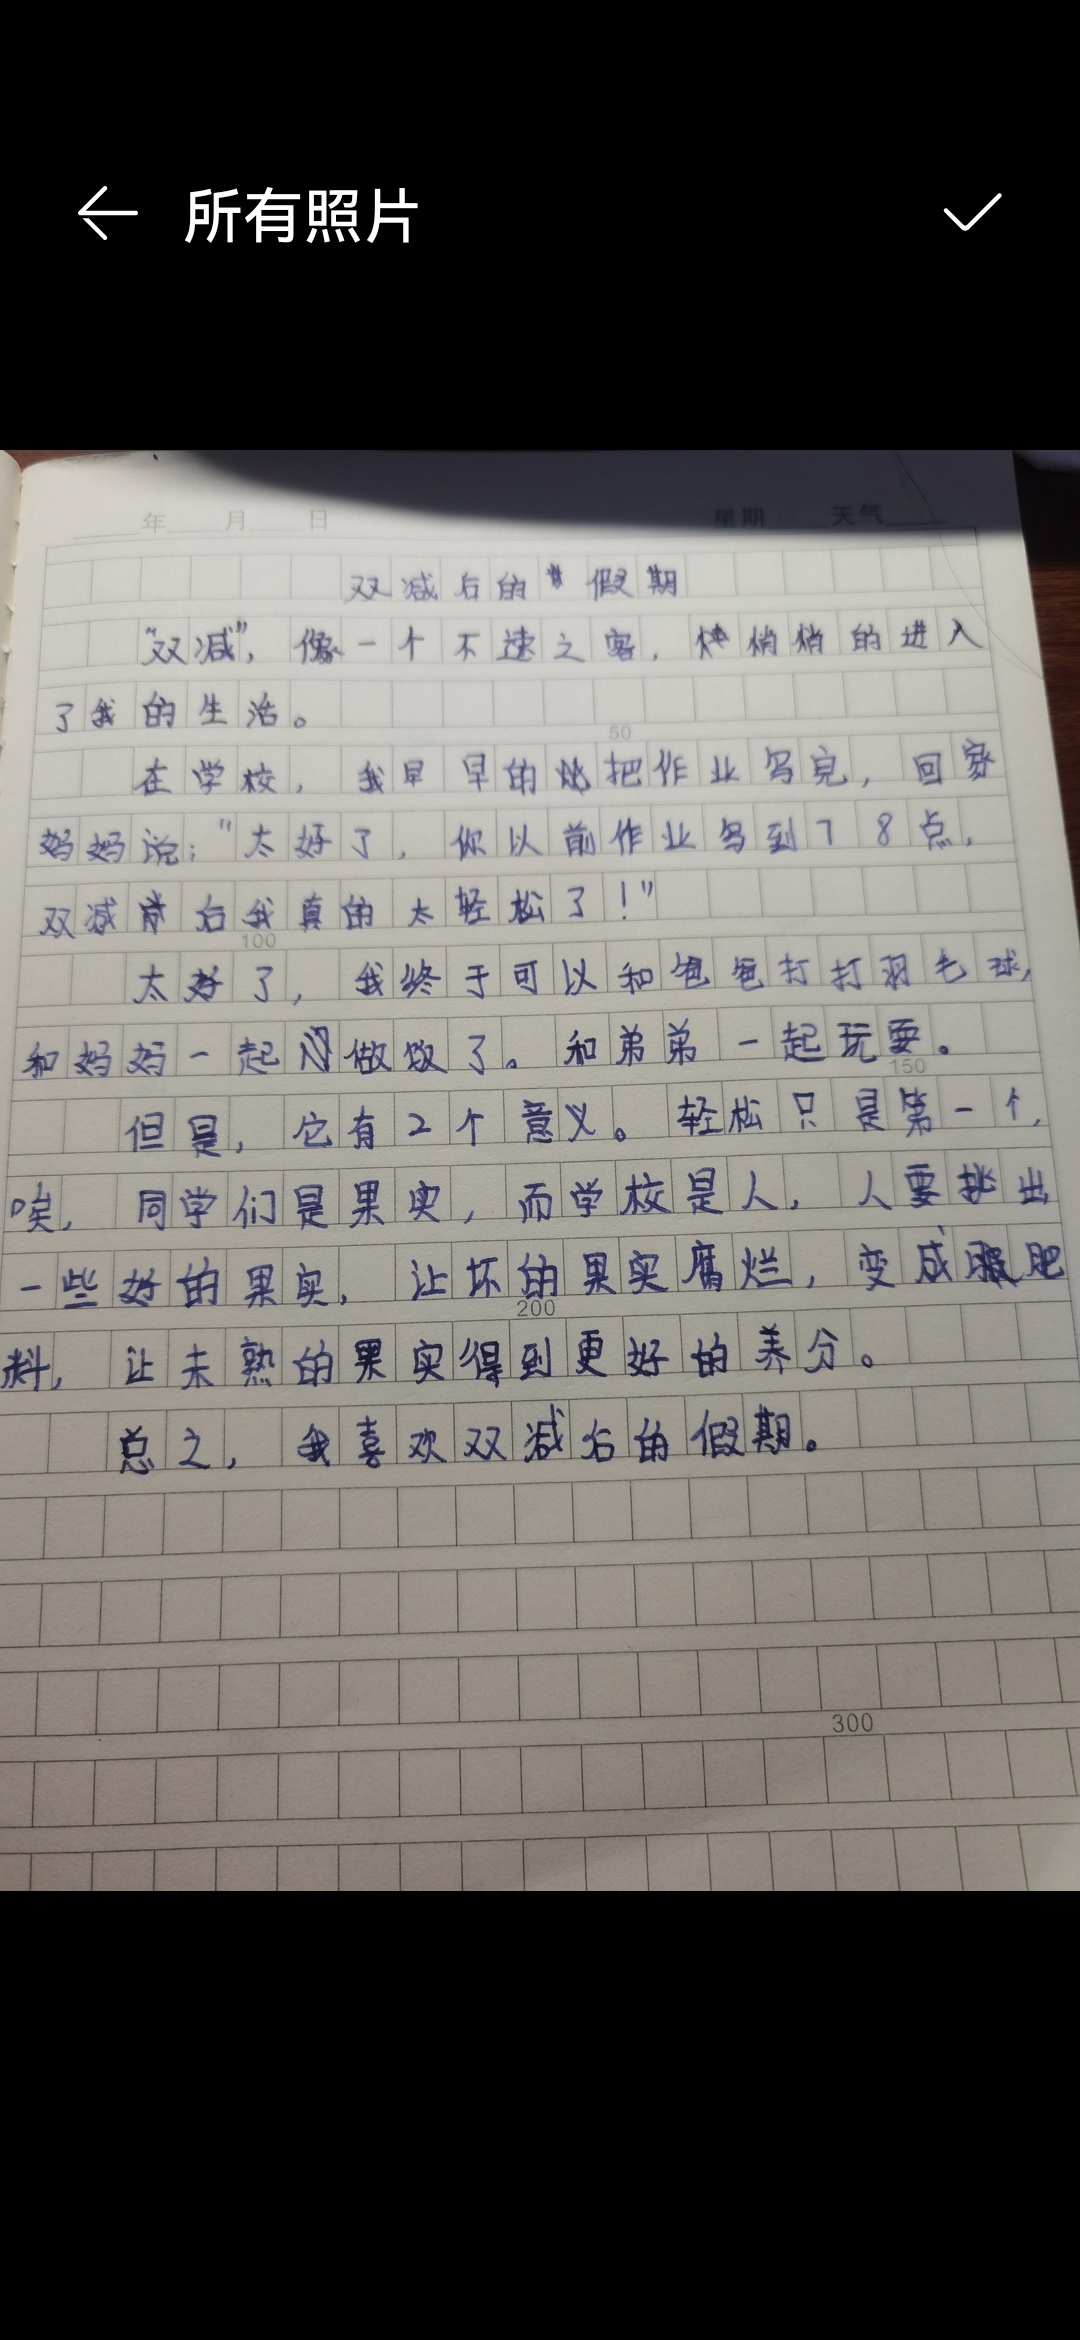 所有照片
年 月 日 星期 天气
双减后的假期
“双减”，像一个不速之客，悄悄的进入
了我的生活。
50
在学校，我早早的把作业写完，回家
妈妈说：“太好了，你以前作业写到78点，
双减后我真的太轻松了！”
100
太好了，我终于可以和爸爸打打羽毛球，
和妈妈一起做饭了。和弟弟一起玩耍。
150
但是，它有2个意义。轻松只是第一个，
唉，同学们是果实，而学校是人，人要挑出
一些好的果实，让坏的果实腐烂，变成肥
200
料，让未熟的果实得到更好的养分。
总之，我喜欢双减后的假期。
300